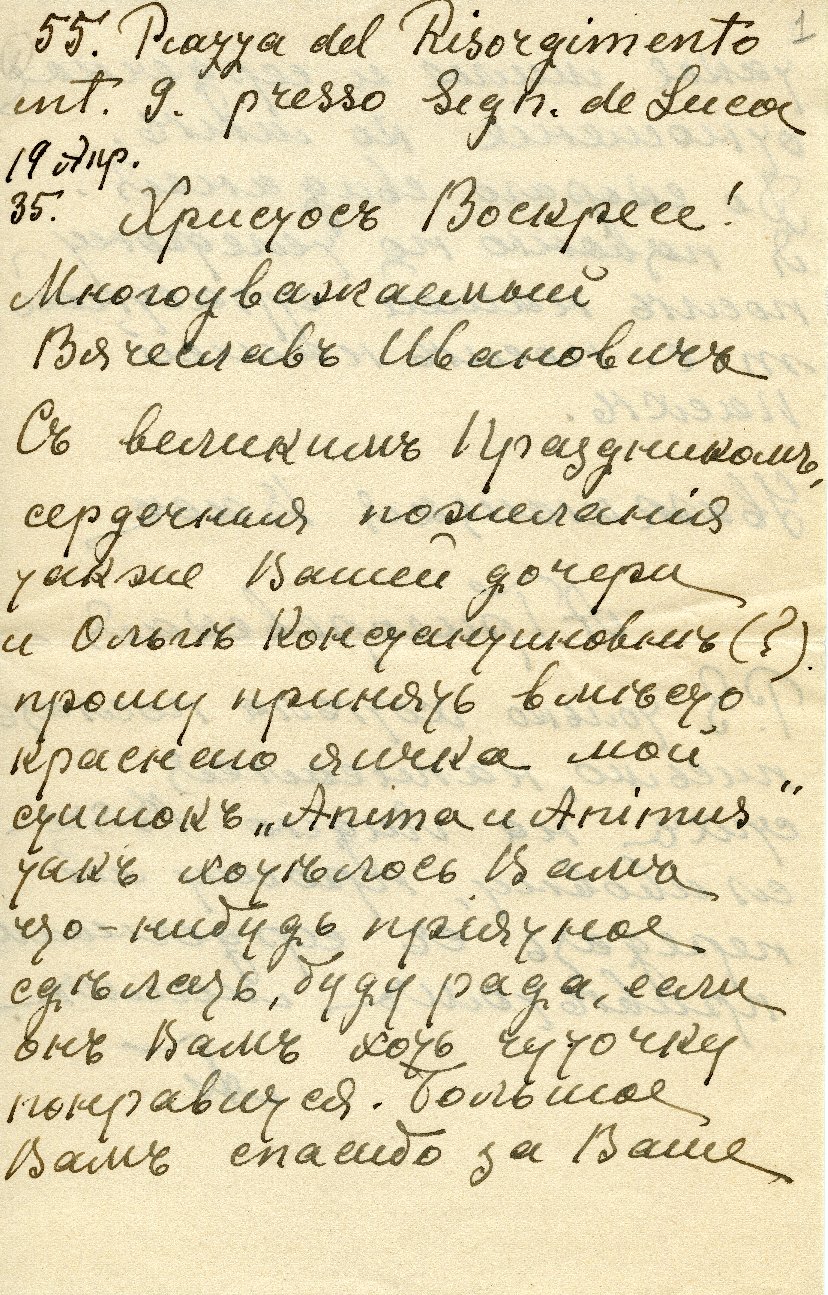 1
55. Piazza del Risorgimento
int. 9. presso Sign. de Luca
19 Апр.
35. Христосъ Воскресе!
Многоуважаемый
Вячеславъ Ивановичъ
Съ великимъ Праздникомъ,
сердечныя пожеланія
также Вашей дочери
и Ольгѣ Константиновнѣ (?).
прошу принять вмѣсто
краснаго яичка мой
стишокъ „Anima и Animus”
такъ хотѣлось Вамъ
что-нибудь пріятное
сдѣлать, буду рада, если
онъ Вамъ хоть чуточку
понравится. Большое
Вамъ спасибо за Ваше